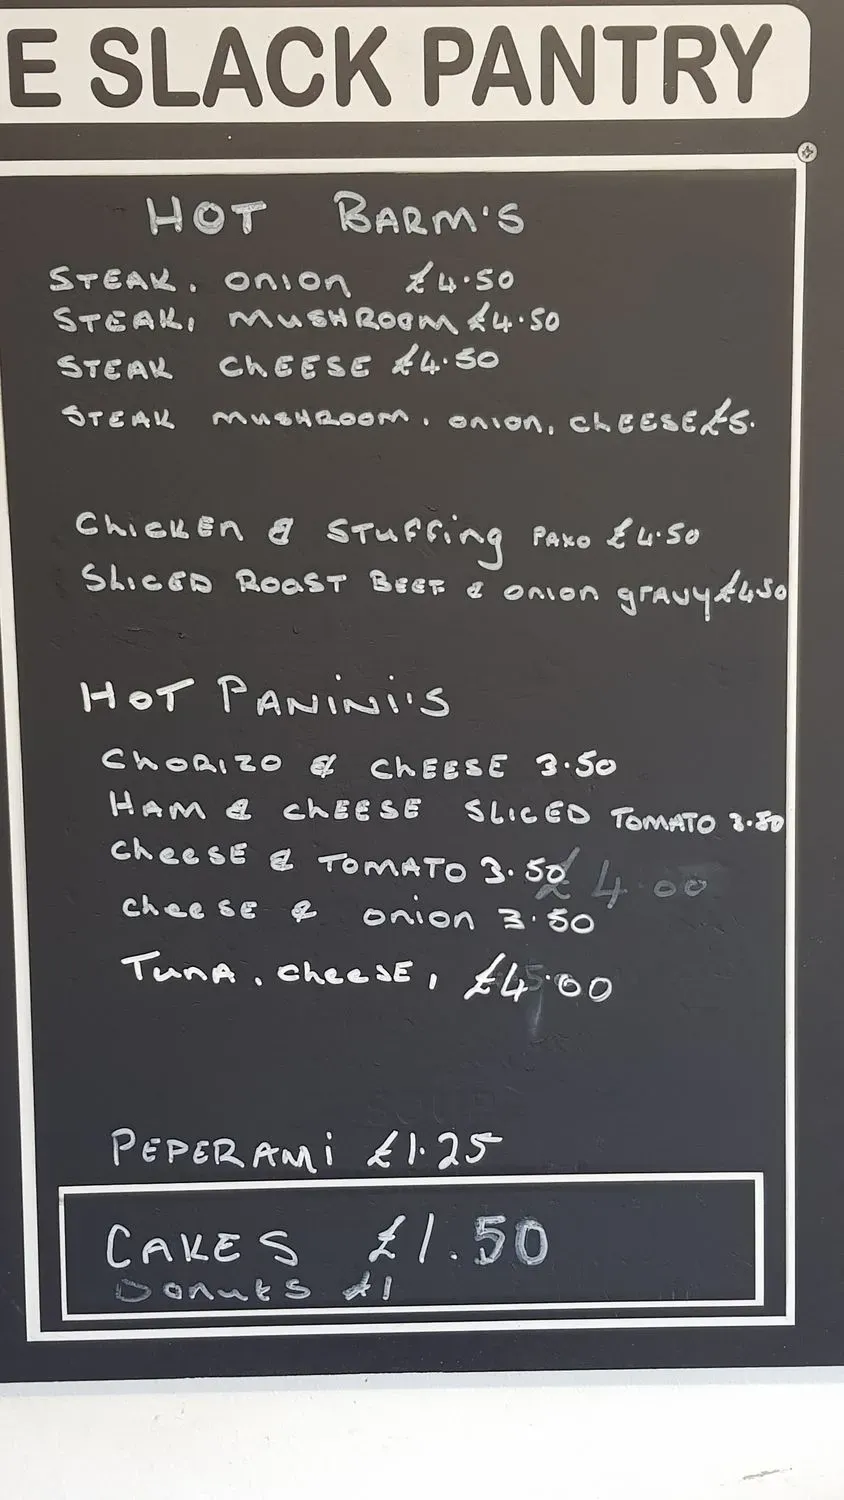 E SLACK PANTRY
HOT BARM'S
STEAK, ONION £4.50
STEAK, MUSHROOM £4.50
STEAK CHEESE £4.50
STEAK MUSHROOM, ONION, CHEESE £5.
CHICKEN & STUFFING PAXO £4.50
SLICED ROAST BEEF & ONION GRAVY £4.50
HOT PANINI'S
CHORIZO & CHEESE 3.50
HAM & CHEESE SLICED TOMATO 3.50
CHEESE & TOMATO 3.50 £4.00
CHEESE & ONION 3.50
TUNA, CHEESE, £4.00
SOUP
PEPERAMI £1.25
CAKES £1.50
DONUTS £1